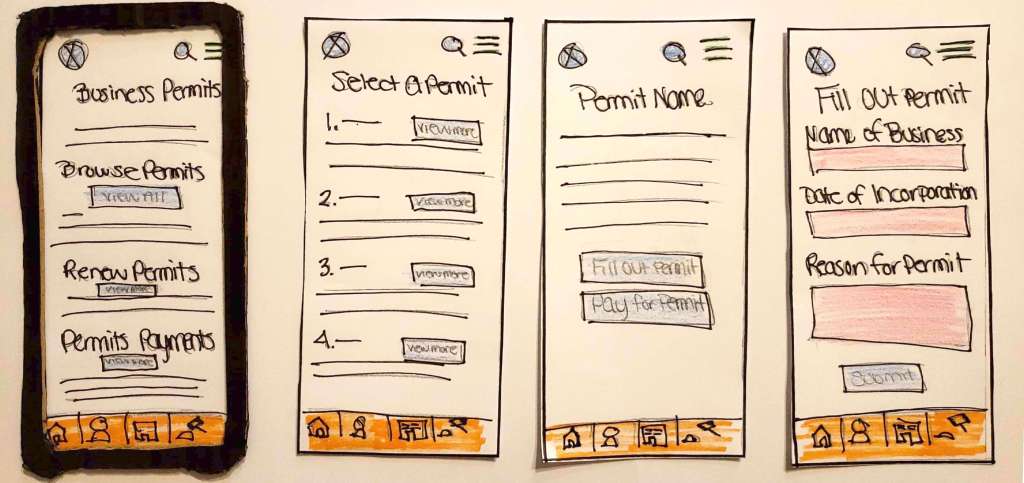 Business Permits
Browse Permits
View All
Renew Permits
View more
Permits Payments
View more
Select A Permit
1.
View more
2.
View more
3.
View more
4.
View more
Permit Name
Fill Out Permit
Pay for Permit
Fill Out Permit
Name of Business
Date of Incorporation
Reason for Permit
Submit